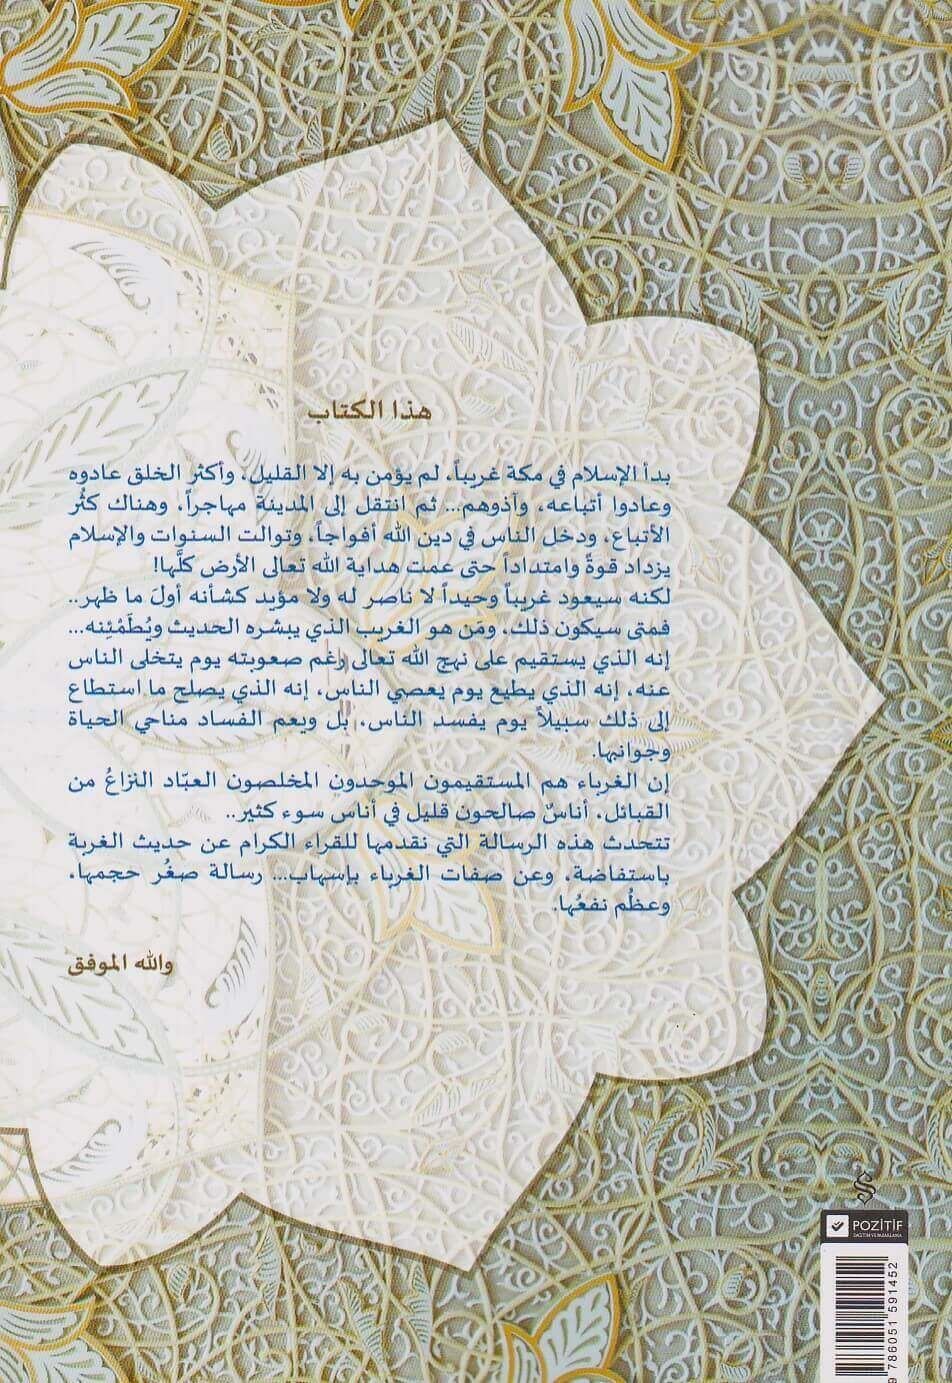 هذا الكتاب
بدأ الإسلام في مكة غريباً، لم يؤمن به إلا القليل، وأكثر الخلق عادوه
وعادوا أتباعه، وآذوهم... ثم انتقل إلى المدينة مهاجراً، وهناك كثُر
الأتباع، ودخل الناس في دين الله أفواجاً، وتوالت السنوات والإسلام
يزداد قوةً وامتداداً حتى عمت هداية الله تعالى الأرض كلَّها!
لكنه سيعود غريباً وحيداً لا ناصر له ولا مؤيد كشأنه أولَ ما ظهر..
فمتى سيكون ذلك، ومَن هو الغريب الذي يبشره الحديث ويُطَمْئِنه...
إنه الذي يستقيم على نهج الله تعالى رغم صعوبته يوم يتخلى الناس
عنه، إنه الذي يطيع يوم يعصي الناس، إنه الذي يصلح ما استطاع
إلى ذلك سبيلاً يوم يفسد الناس، بل ويعم الفساد مناحي الحياة
وجوانبها.
إن الغرباء هم المستقيمون الموحدون المخلصون العبّاد النزاعُ من
القبائل، أناسٌ صالحون قليل في أناس سوء كثير..
تتحدث هذه الرسالة التي نقدمها للقراء الكرام عن حديث الغربة
باستفاضة، وعن صفات الغرباء بإسهاب... رسالة صغُر حجمها،
وعظُم نفعُها.
والله الموفق
POZİTİF
DAĞITIM VE PAZARLAMA
9 786051 591452